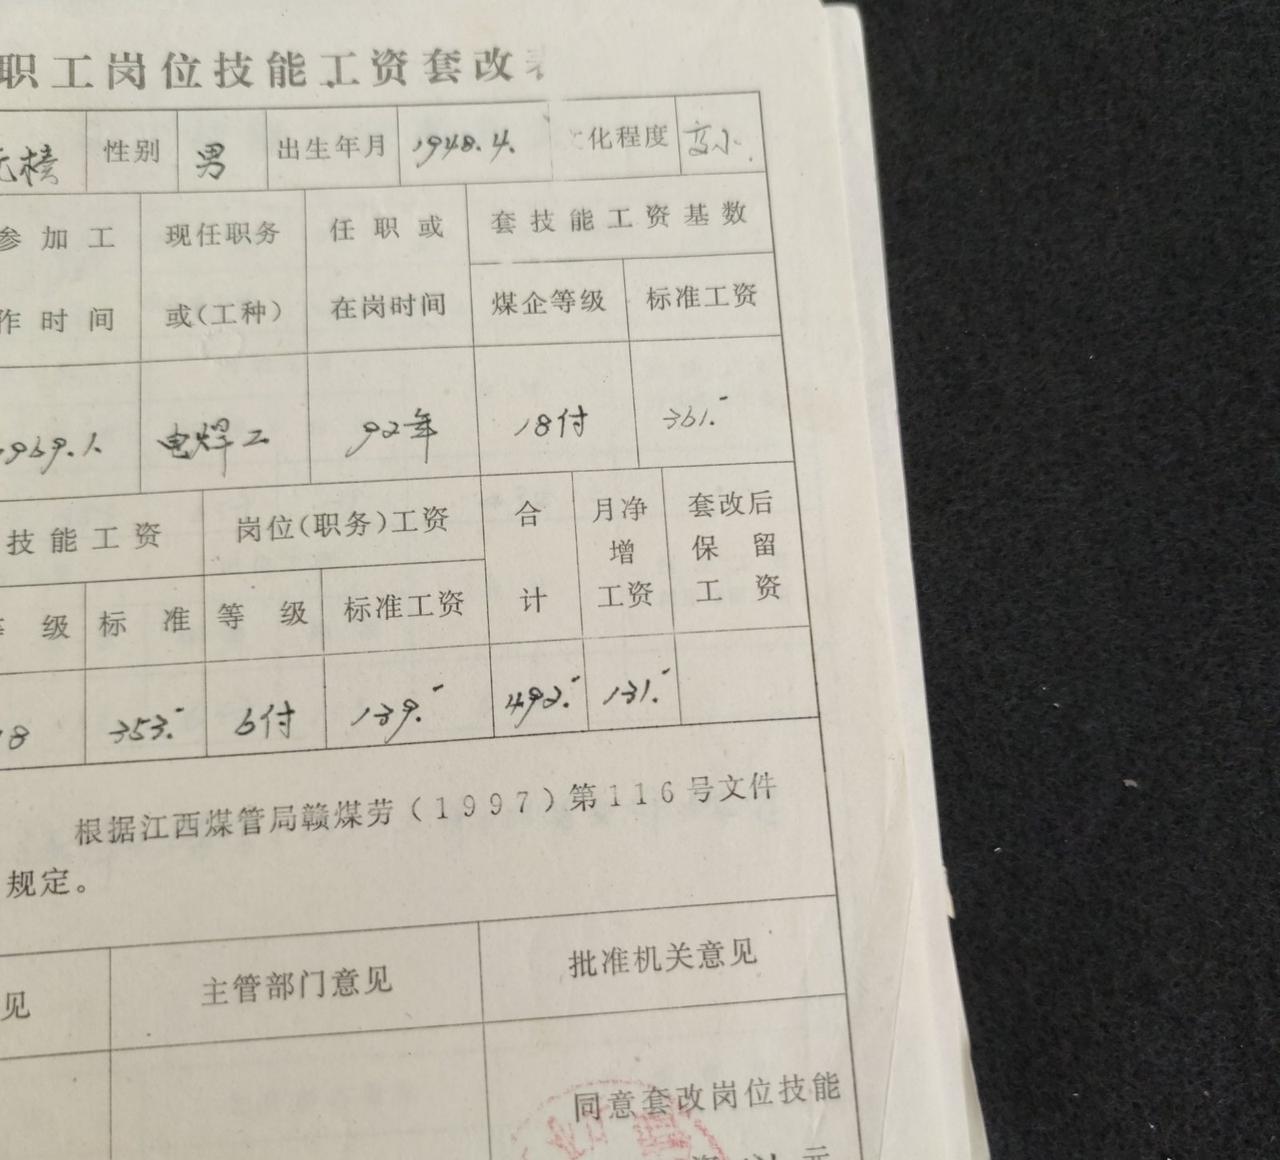 职工岗位技能工资套改表
元榜 性别 男 出生年月 1948.4. 文化程度 高小.
参加工作时间 现任职务或(工种) 任职或在岗时间 套技能工资基数
煤企等级 标准工资
1969.1. 电焊工 92年 18付 361.-
技能工资 岗位(职务)工资 合计 月净增工资 套改后保留工资
等级 标准 等级 标准工资
18 353.- 6付 139.- 492.- 131.-
根据江西煤管局赣煤劳(1997)第116号文件
规定。
见 主管部门意见 批准机关意见
同意套改岗位技能
元